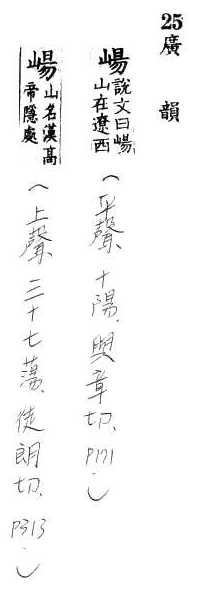 25廣韻
崵說文曰崵山在遼西(平聲、十陽、與章切、P171。)
崵山名漢高帝隱處(上聲、三十七蕩、徒朗切、P313。)